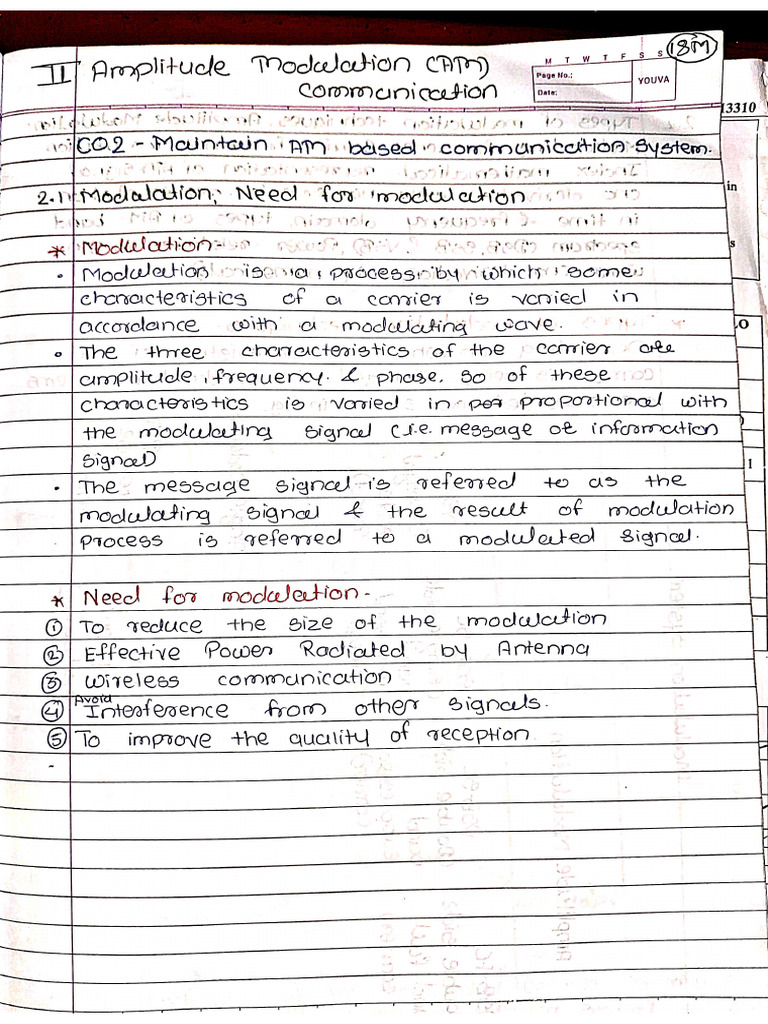 18M
II Amplitude Modulation (AM)
communication
M T W T F S S
Page No.:
Date:
YOUVA
13310
CO.2 - Maintain AM based communication System.
in
2.1 Modulation, Need for modulation
s
* Modulation:-
• Modulation is a process by which some
characteristics of a carrier is varied in
accordance with a modulating wave.
.O
• The three characteristics of the carrier are
amplitude, frequency & phase. so of these
characteristics is varied in per proportional with
the modulating signal (i.e. message or information
signal)
1
• The message signal is referred to as the
modulating signal & the result of modulation
process is referred to a modulated signal.
* Need for modulation -
① To reduce the size of the modulation
② Effective Power Radiated by Antenna
③ wireless communication
④ Avoid Interference from other signals.
⑤ To improve the quality of reception
-